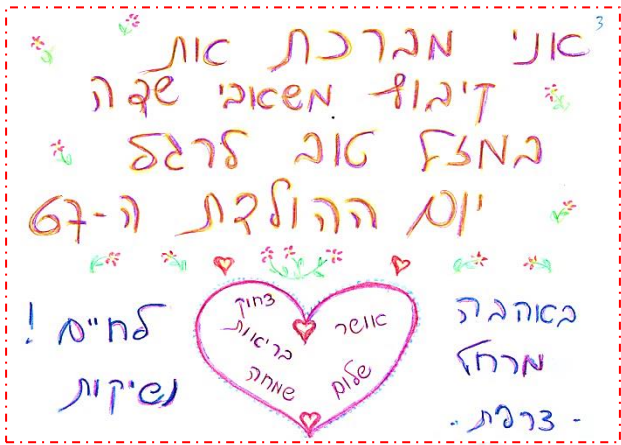 3
אני מברכת את
קיבוץ משאבי שדה
במזל טוב לרגל
יום ההולדת ה-67
באהבה
מרחל
- צרפת -
אושר
צחוק
בריאות
שמחה
שלום
לחיים !
נשיקות